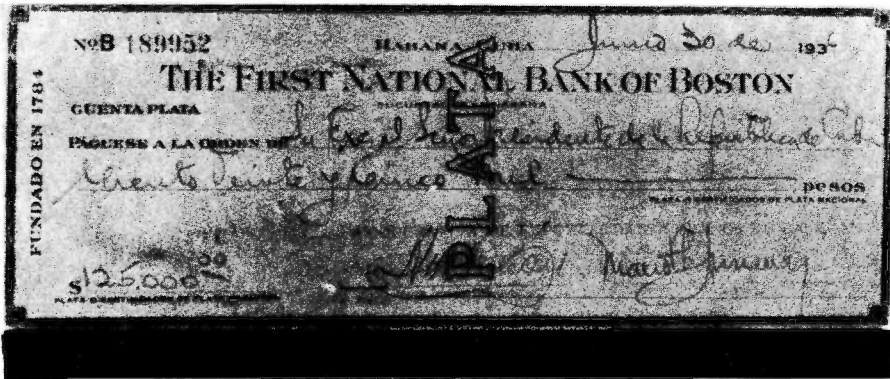 NºB 189952
HABANA, CUBA Junio 30 de 193
THE FIRST NATIONAL BANK OF BOSTON
CUENTA PLATA
PÁGUESE A LA ORDEN DE Su Exc. el Señor Presidente de la República de Cuba
Ciento Veinte y Cinco mil pesos
PLATA O CERTIFICADOS DE PLATA NACIONAL
$125,000.00
PLATA O CERTIFICADOS DE PLATA NACIONAL
FUNDADO EN 1784
PLATA